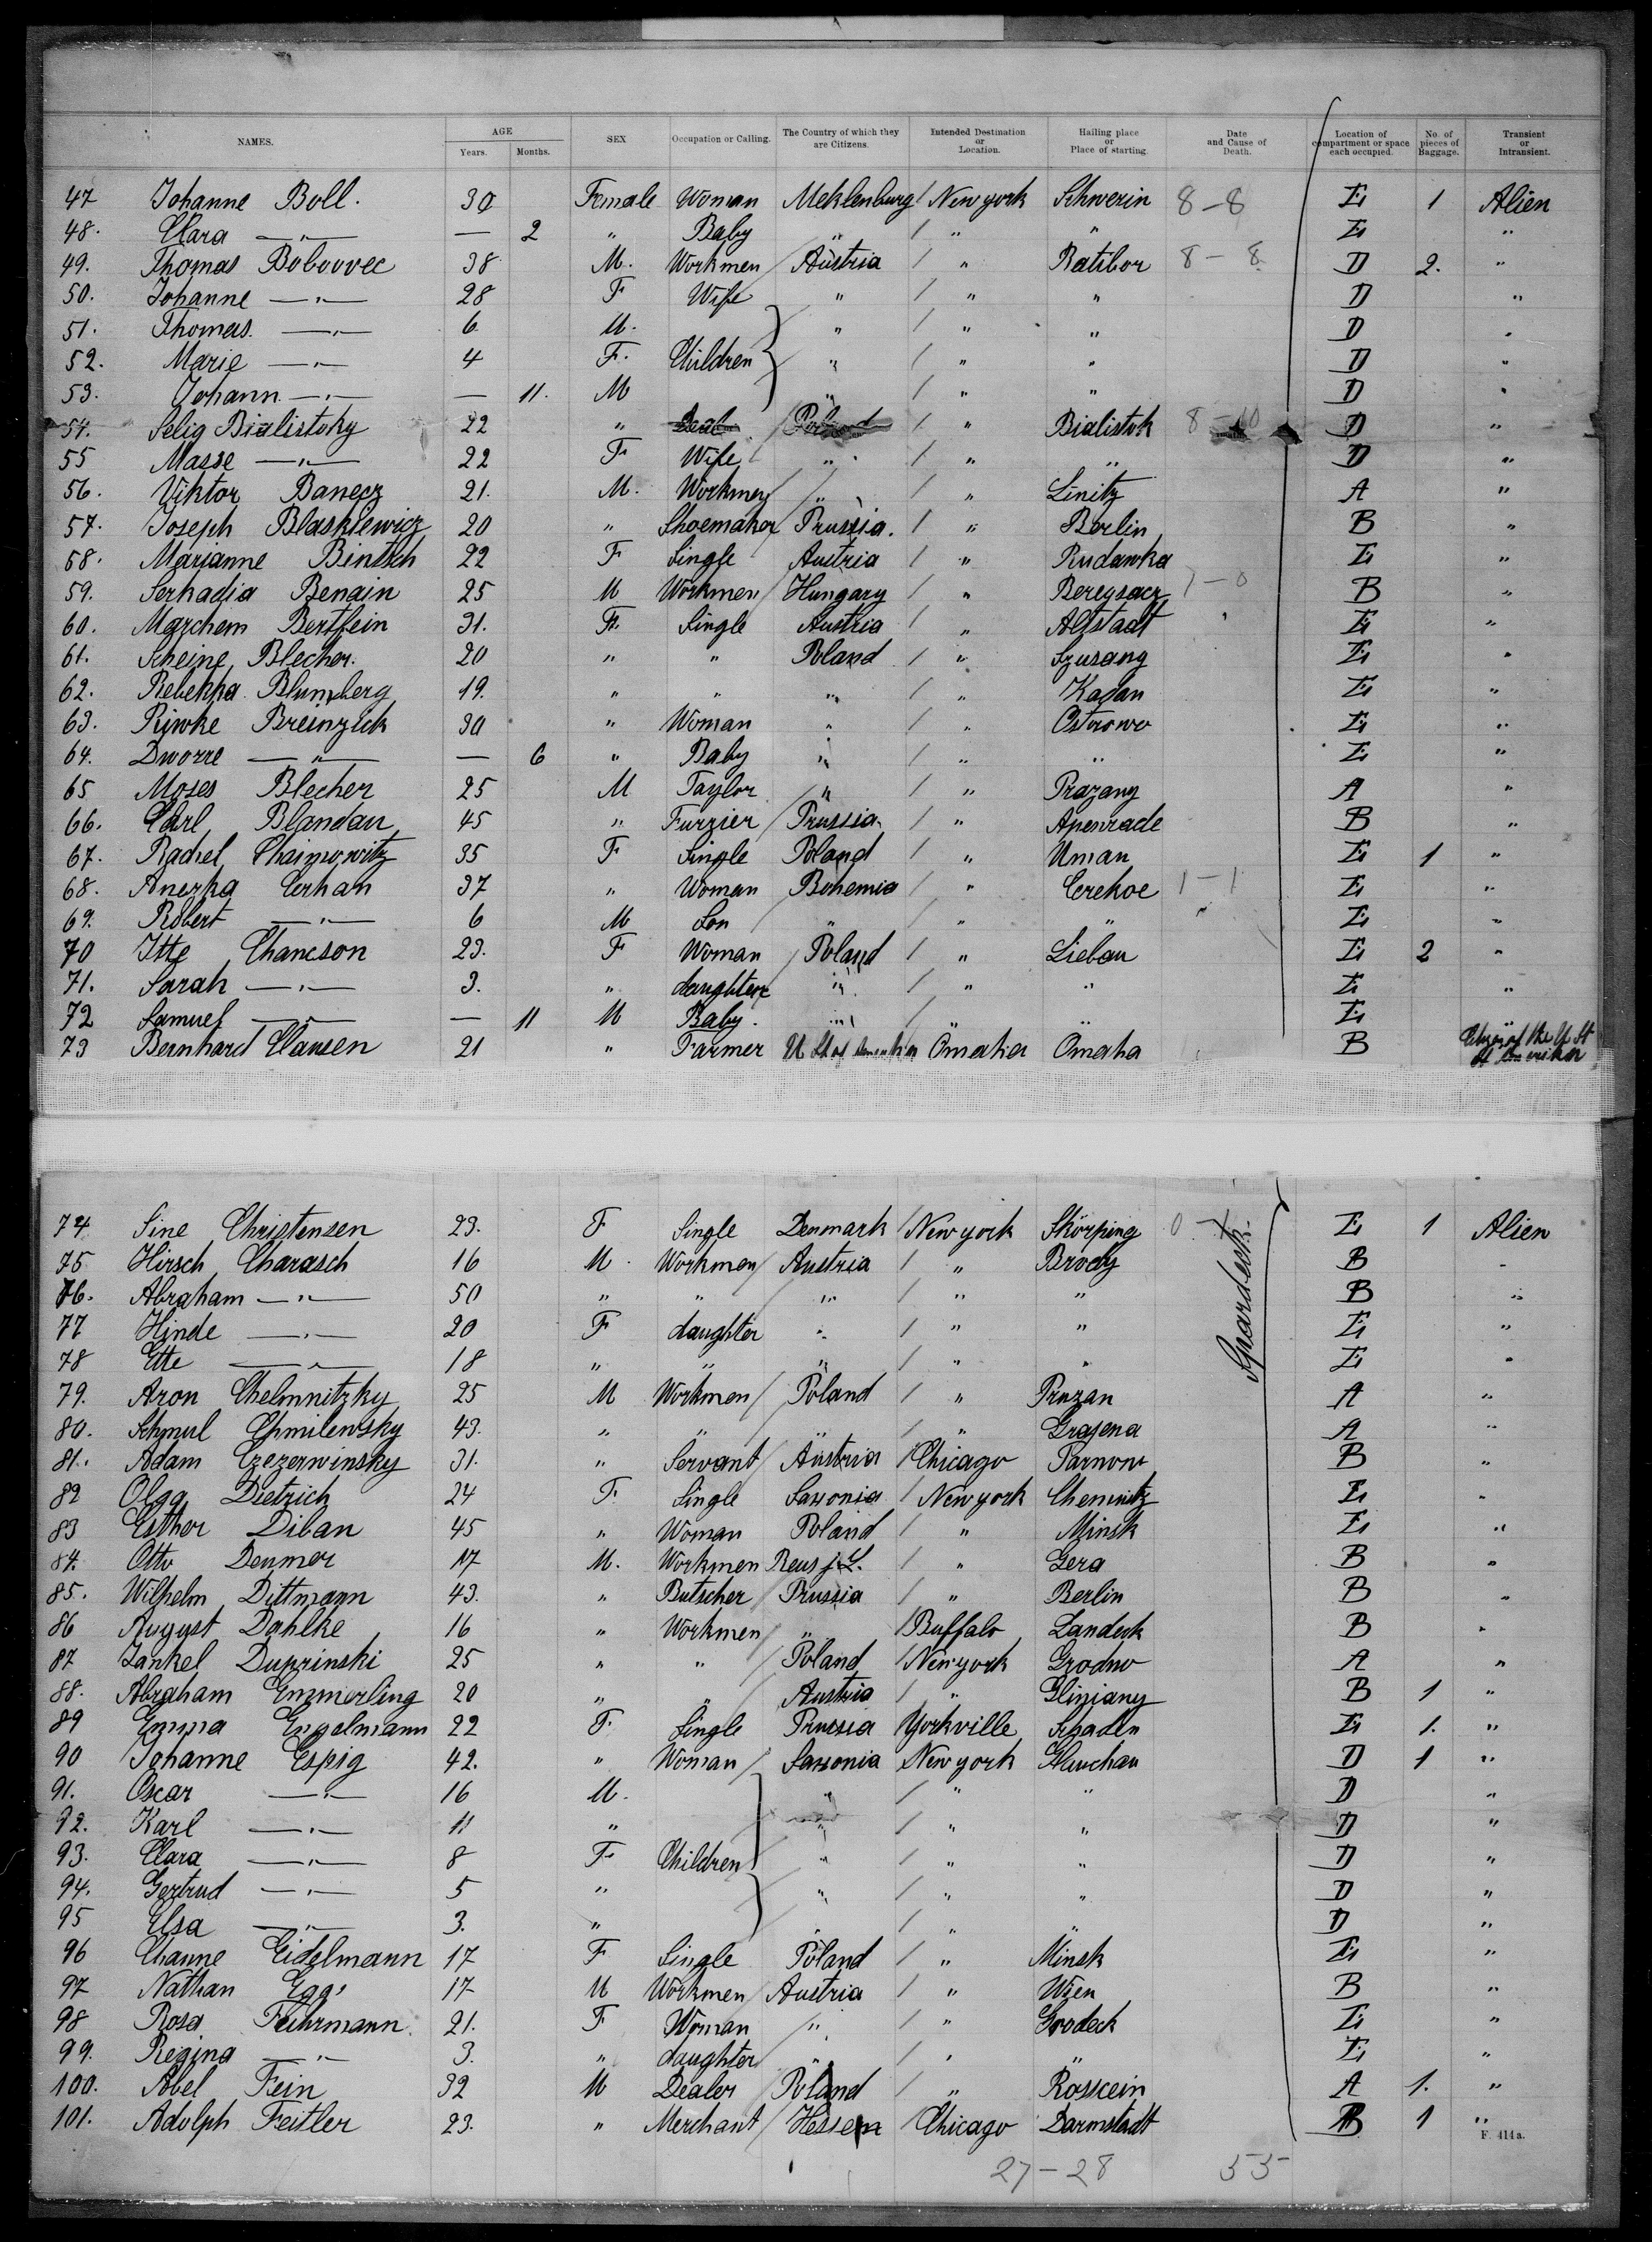 NAMES. AGE Years. Months. SEX Occupation or Calling. The Country of which they are Citizens. Intended Destination or Location. Hailing place or Place of starting. Date and Cause of Death. Location of compartment or space each occupied. No. of pieces of Baggage. Transient or Intransient.
47 Johanne Boll. 30 Female Woman Meklenburg / New york Schwerin 8-8 E 1 Alien
48. Clara —"— — 2 " Baby " / " " E "
49. Thomas Bobovvec 38 M. Workmen / Austria " Ratibor 8-8 D 2. "
50. Johanne —"— 28 F Wife " / " " D "
51. Thomas. —"— 6 M. " / " " D "
52. Marie —"— 4 F. Children } " / " " D "
53. Johann —"— — 11. M " / " " D "
54. Selig Bialistoky 22 " / Poland / " Bialistok 8-10 D "
55 Masse —"— 22 F Wife " / " " D "
56. Viktor Banecz 21. M. Workmen / " " Linitz A "
57. Joseph Blaskiewicz 20 " Shoemaker / Prussia. / " Berlin B "
58. Marianne Bintsch 22 F Single Austria / " Rudawka E "
59. Serkadia Benain 25 M Workmen / Hungary / " Beregsacz B "
60. Marchem Bertfein 31. F. Single Austria / " Altstadt E "
61. Scheine Blecher. 20 " " Poland / " Szusang E "
62. Rebekka Blumberg 19. " " " / " Kadan E "
63. Riwke Breinzick 30 " Woman " / " Ostrowo E "
64. Dworre —"— — 6 " Baby " / " " E "
65 Moses Blecher 25 M Taylor / " / " Prazany A "
66. Carl Blandau 45 " Furrier / Prussia. / " Apenrade B "
67. Rachel Chaimowitz 35 F Single Poland / " Uman E 1 "
68. Anezka Cerhan 37 " Woman Bohemia / " Cerekoe 1-1 E "
69. Robert —"— 6 M Son / " / " " E "
70 Itte Chancson 23. F Woman / Poland / " Liebau E 2 "
71. Sarah —"— 3. " daughter " / " " E "
72 Samuel —"— — 11 M Baby. " / " " E
73 Bernhard Clausen 21 " Farmer U St of Amerika Omaha Omaha B Citizen of the U St of Amerika
74 Sine Christensen 23. F Single Denmark / New york Skörping E 1 Alien
75 Hirsch Charasch 16 M. Workmen / Austria / " Brody B "
76. Abraham —"— 50 " " / " / " " B "
77 Hinde —"— 20 F daughter " / " " E "
78 Ette —"— 18 " " " / " " E "
79. Aron Chelmnitzky 25 M Workmen / Poland / " Pruzan A "
80. Schmul Chmilewsky 43. " " / " / " Grajena A "
81. Adam Czezerwinsky 31. " Servant / Austria / Chicago Tarnow B "
82 Olga Dietrich 24 F. Single Saxonia / New york Chemnitz E "
83 Esther Diban 45 " Woman Poland / " Minsk E "
84. Otto Deumer 17 M. Workmen Reus j. L. / " Gera B "
85. Wilhelm Dittmann 43. " Butscher / Prussia / " Berlin B "
86 August Dahlke 16 " Workmen / " / Buffalo Landeck B "
87 Jankel Duprinski 25 " " / Poland / New york Grodno A "
88. Abraham Emmerling 20 " " Austria / " Gliniany B 1 "
89 Emma Engelmann 22 F. Single Prussia Yorkville E 1. "
90 Johanne Espig 42. " Woman / Saxonia New york Glauchau D 1 "
91. Oscar —"— 16 M. " / " " D "
92. Karl —"— 11 " " / " " D "
93. Clara —"— 8 F Children } " / " " D "
94. Gertrud —"— 5 " " / " " D "
95 Elsa —"— 3. " " / " " D "
96 Channe Eidelmann 17 F Single Poland / " Minsk E "
97 Nathan Egg. 17 M Workmen / Austria / " Wien B "
98 Rosa Fuhrmann. 21. F Woman / " / " Grodeck E "
99. Regina —"— 3. " daughter " / " " E "
100. Abel Fein 32 M Dealer / Poland / " Rosscein A 1. "
101. Adolph Feitler 23. " Merchant / Hessen / Chicago Darmstadt B 1 "
F. 414a.
27-28 55